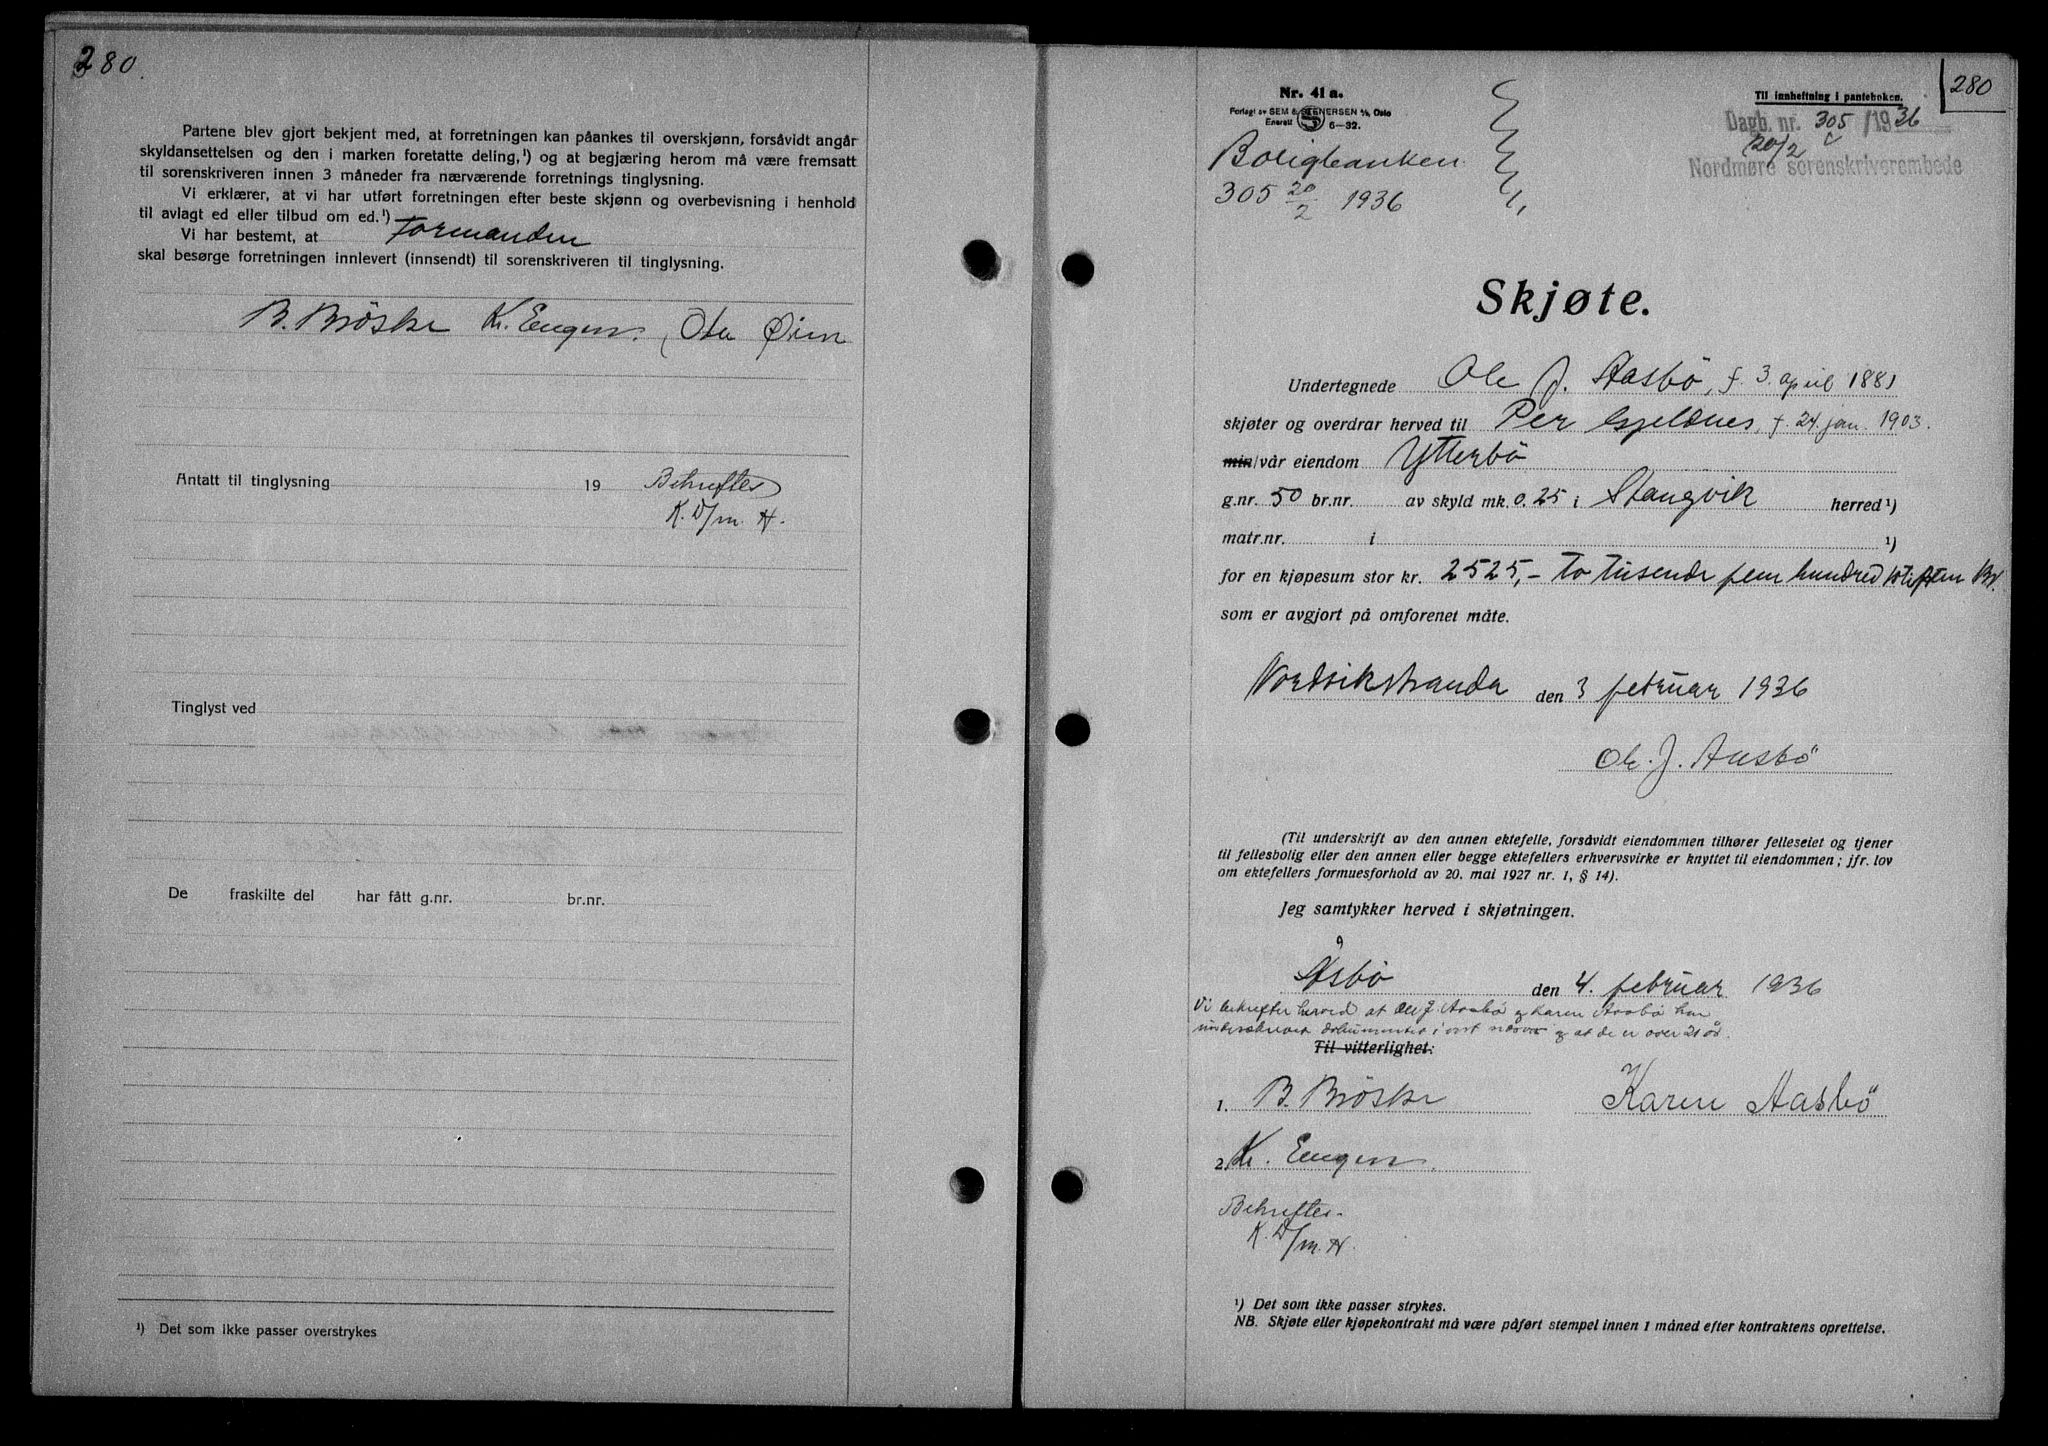 280.
Partene blev gjort bekjent med, at forretningen kan påankes til overskjønn, forsåvidt angår
skyldansettelsen og den i marken foretatte deling,¹) og at begjæring herom må være fremsatt
til sorenskriveren innen 3 måneder fra nærværende forretnings tinglysning.
Vi erklærer, at vi har utført forretningen efter beste skjønn og overbevisning i henhold
til avlagt ed eller tilbud om ed.¹)
Vi har bestemt, at Formanden
skal besørge forretningen innlevert (innsendt) til sorenskriveren til tinglysning.
B. Brøske Kr. Engen. Ola Øien
Antatt til tinglysning 19 Bekreftes
K. D/m. H.
Tinglyst ved
De fraskilte del har fått g.nr. br.nr.
¹) Det som ikke passer overstrykes
280
Nr. 41 a.
Forlagt av SEM & STENERSEN A/S, Oslo
Enerett S 6-32.
Til innheftning i panteboken.
Dagb. nr. 305 /1936
20/2
Nordmøre sorenskriverembede
Boligbanken
305 20/2 1936
Skjøte.
Undertegnede Ole J. Aasbö, f. 3. april 1881
skjøter og overdrar herved til Per Gjeldnes, f. 24 jan. 1903.
min/vår eiendom Ytterbö
g.nr. 50 br.nr. av skyld mk. 0.25 i Stangvik herred ¹)
matr.nr. i ¹)
for en kjøpesum stor kr. 2525,- to tusende fem hundred Kr.
som er avgjort på omforenet måte.
Nordvikstranda den 3 februar 1936
Ole. J. Aasbö
(Til underskrift av den annen ektefelle, forsåvidt eiendommen tilhører felleseiet og tjener
til fellesbolig eller den annen eller begge ektefellers erhvervsvirke er knyttet til eiendommen; jfr. lov
om ektefellers formuesforhold av 20. mai 1927 nr. 1, § 14).
Jeg samtykker herved i skjøtningen.
Åsbö den 4. februar 1936
Vi bekrefter herved at Ole J. Aasbö og Karen Aasbö har
underskrevet dokumentet i vort nærvær og at de er over 21 år.
Til vitterlighet:
1. B. Brøske Karen Aasbö
2. Kr. Engen
Bekreftes.
K. D/m. H.
¹) Det som ikke passer strykes.
NB. Skjøte eller kjøpekontrakt må være påført stempel innen 1 måned efter kontraktens oprettelse.